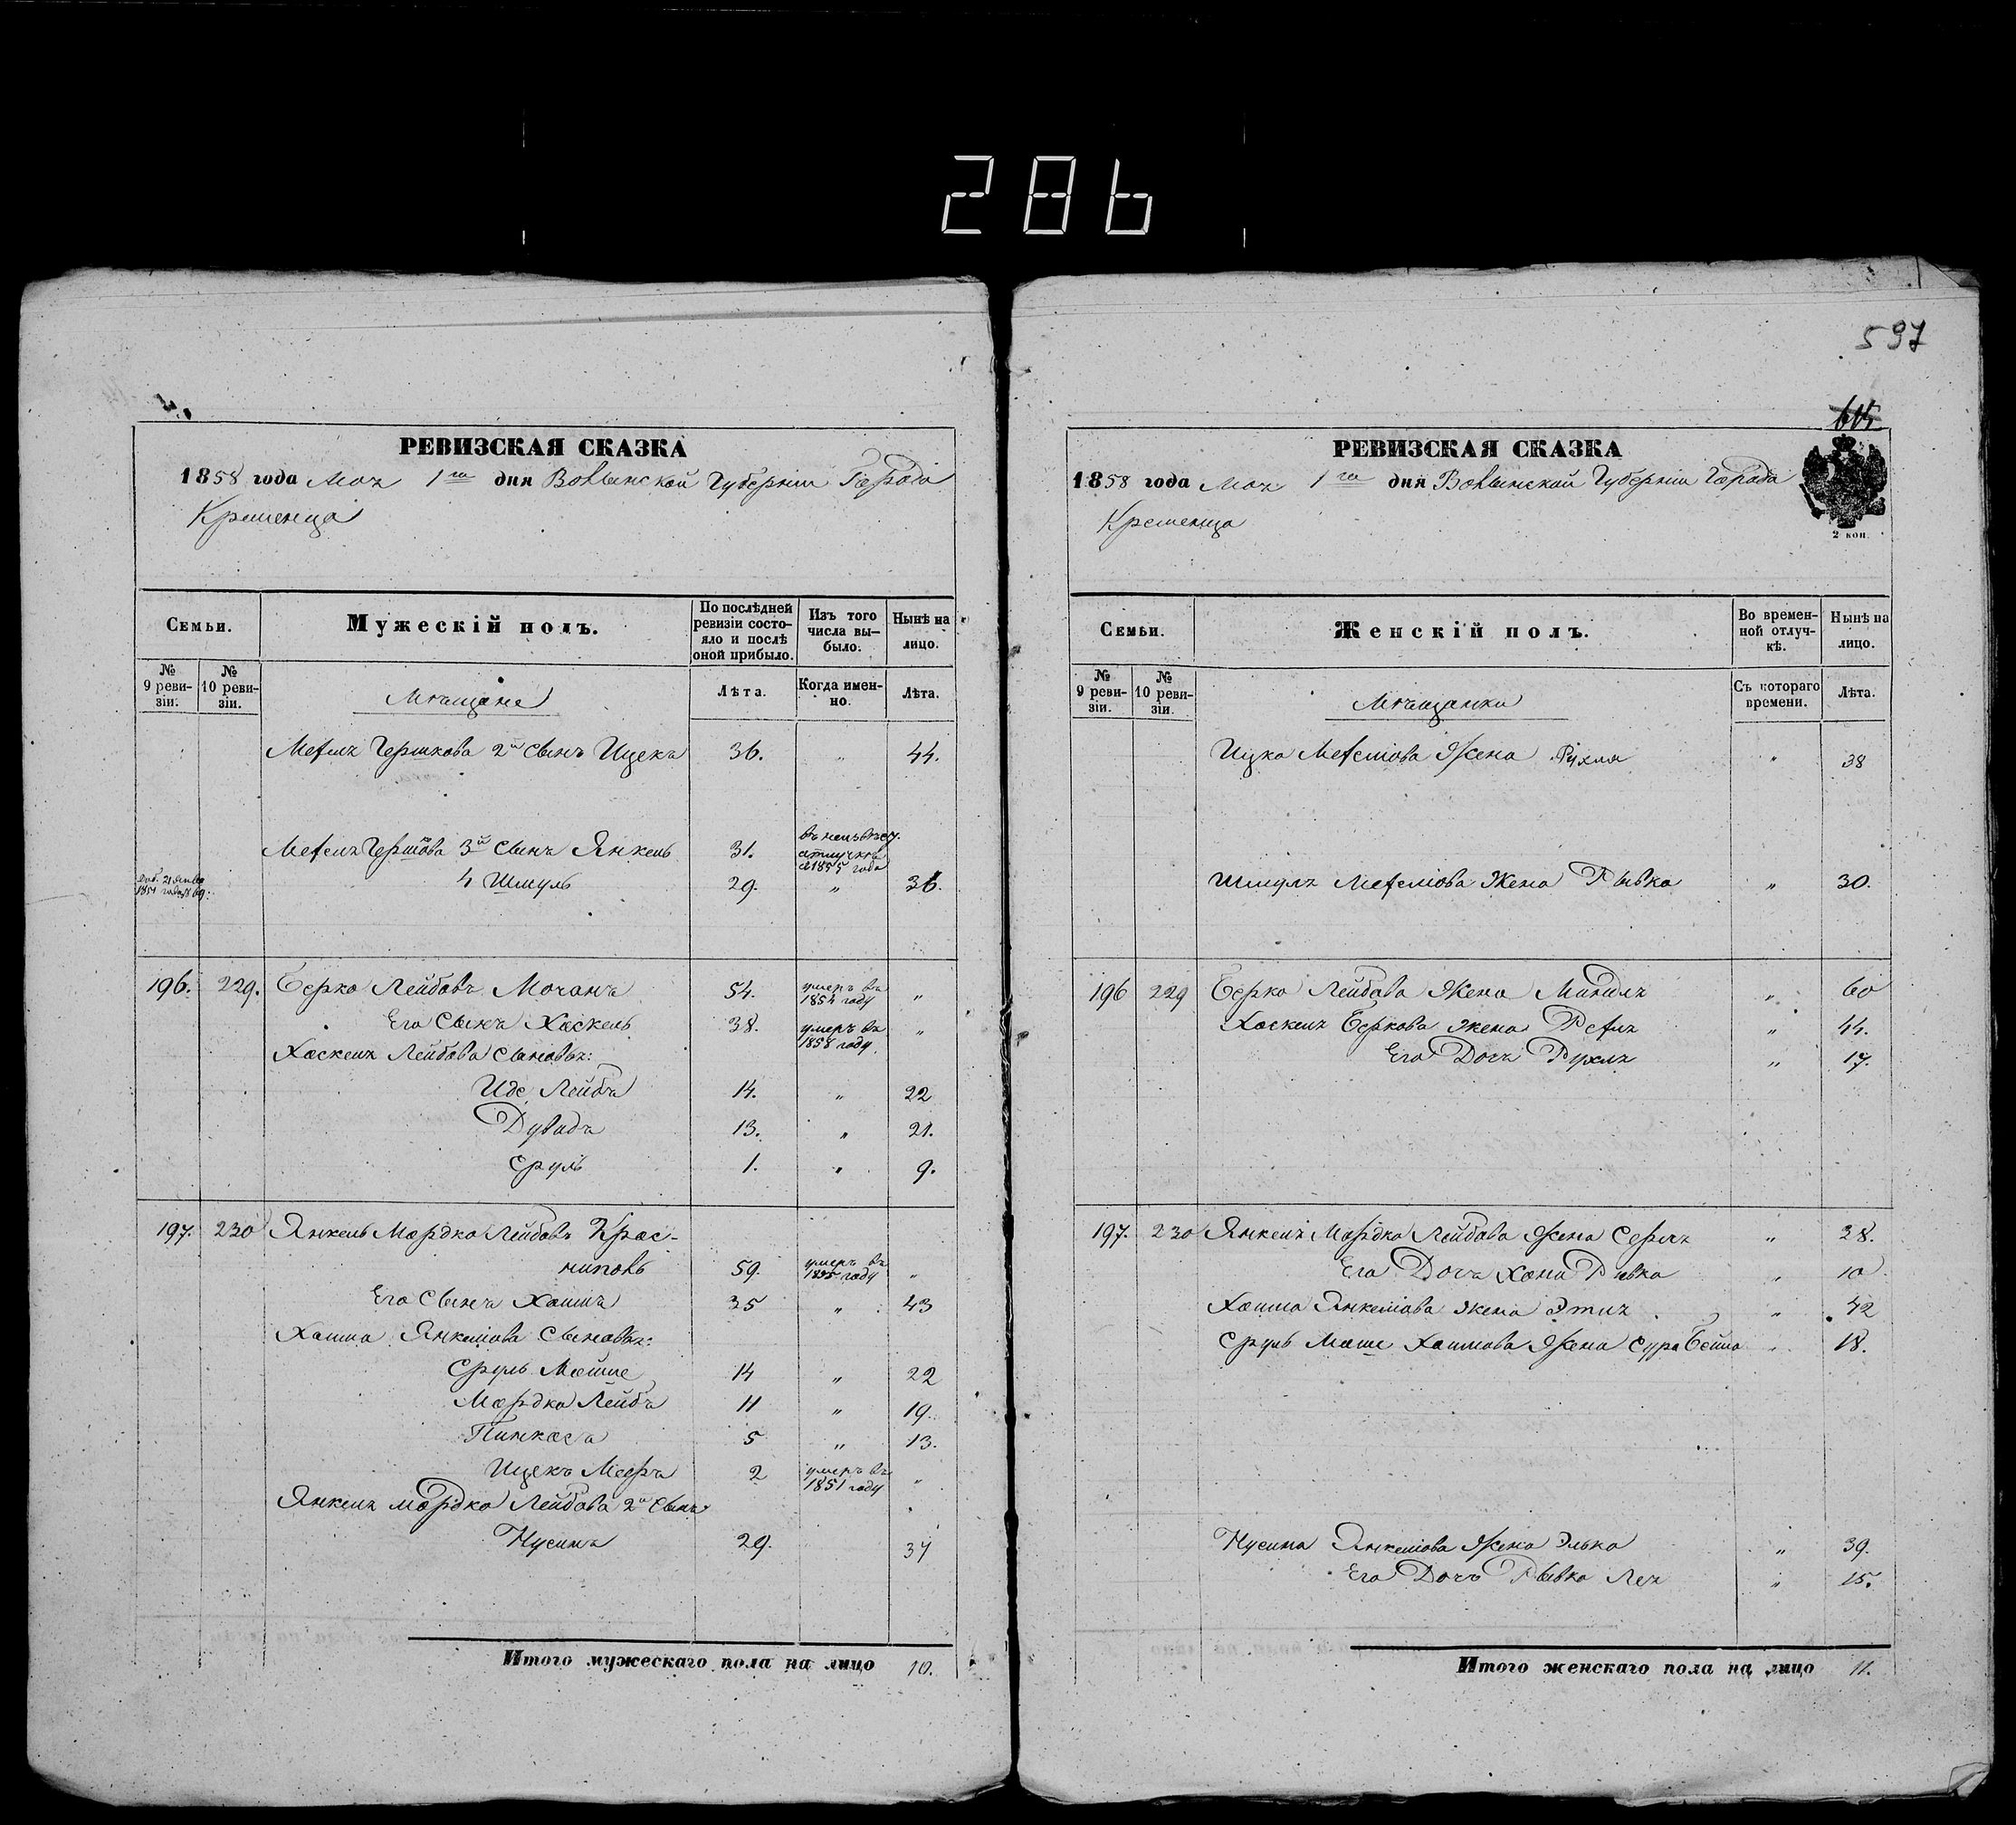 286
597
РЕВИЗСКАЯ СКАЗКА
1858 года Мая 1го дня Волынской Губерніи Города
Кременца
Семьи.
Мужескій полъ.
По послѣдней ревизіи состо-яло и послѣ оной прибыло.
Изъ того числа вы-было.
Нынѣ на лицо.
№ 9 реви-зіи.
№ 10 реви-зіи.
Мѣщане
Лѣта.
Когда имен-но.
Лѣта.
Мехля Гершкова 2й сынъ Ицекъ 36. „ 44.
Мехля Гершкова 3й сынъ Янкель 31. въ неизвѣст. отлучкѣ съ 1855 года
4 Шмуль 29. „ 36.
196. 229. Берко Лейбовъ Мочанъ 54. умеръ въ 1854 году „
Его Сынъ Хаскель 38. умеръ въ 1858 году „
Хаскеля Лейбова Сыновья:
Иде Лейба 14. „ 22
Дувидъ 13. „ 21.
Сруль 1. „ 9.
197. 230 Янкель Мордко Лейбовъ Крас-
ниполь 59. умеръ въ 1855 году „
Его Сынъ Хаимъ 35 „ 43
Хаима Янкелюва Сыновья:
Сруль Мойше 14 „ 22
Мордко Лейба 11 „ 19.
Пинкасъ 5 „ 13.
Ицекъ Мееръ 2 умеръ въ 1851 году „
Янкеля Мордко Лейбова 2й Сынъ
Нусинъ 29. 37
Итого мужескаго пола на лицо 10.
РЕВИЗСКАЯ СКАЗКА
1858 года Мая 1го дня Волынской Губерніи Города
Кременца
2 коп.
Семьи.
Женскій полъ.
Во времен-ной отлуч-кѣ.
Нынѣ на лицо.
№ 9 реви-зіи.
№ 10 реви-зіи.
Мѣщанки
Съ котораго времени.
Лѣта.
Ицка Мехелюва Жена Рухля „ 38
Шмуля Мехелюва Жена Рывка „ 30.
196 229 Берка Лейбова Жена Миндля „ 60
Хаскеля Беркова Жена Рехля „ 44.
Его Дочь Рухля „ 17.
197. 230 Янкеля Мордка Лейбова Жена Серля „ 28.
Его Дочь Хана Рывка „ 10
Хаима Янкелюва Жена Этля „ 42
Сруль Моше Хаимова Жена Сура Бейла „ 18.
Нусина Янкелюва Жена Элька „ 39.
Его Дочь Рывка Лея „ 15.
Итого женскаго пола на лицо 11.